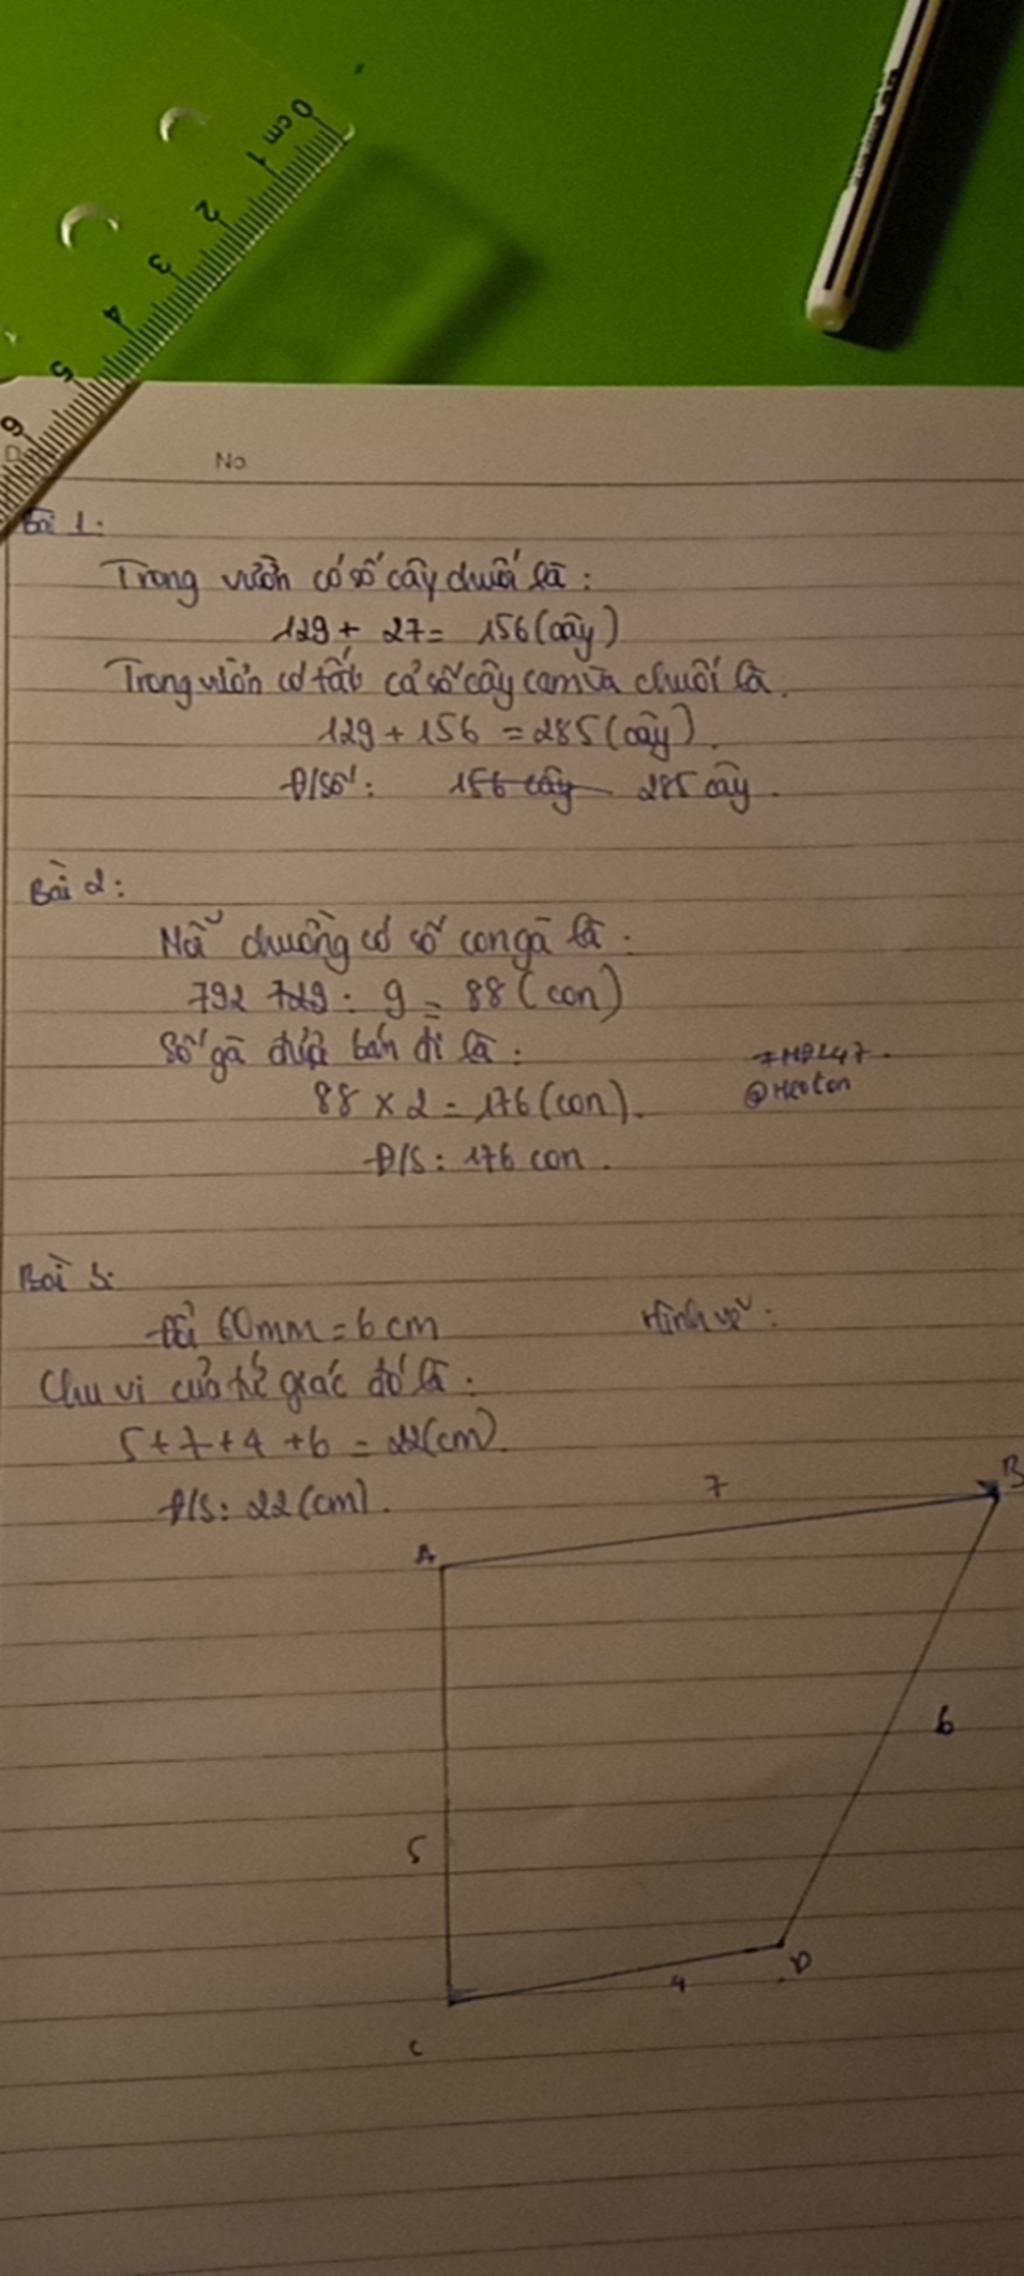 0cm 1 2 3 4 5 6
No
Bài 1:
Trong vườn có số cây chuối là:
129 + 27 = 156 (cây)
Trong vườn có tất cả số cây cam và chuối là.
129 + 156 = 285 (cây).
Đ/Số: 156 cây 285 cây.
Bài 2:
Mỗi chuồng có số con gà là:
792 729 : 9 = 88 (con)
Số gà được bán đi là:
88 x 2 = 176 (con).
Đ/S: 176 con.
Bài 3:
Đổi 60mm = 6 cm
Hình vẽ:
Chu vi của tứ giác đó là:
5 + 7 + 4 + 6 = 22 (cm).
Đ/S: 22 (cm).
7
B
A
6
5
D
4
C